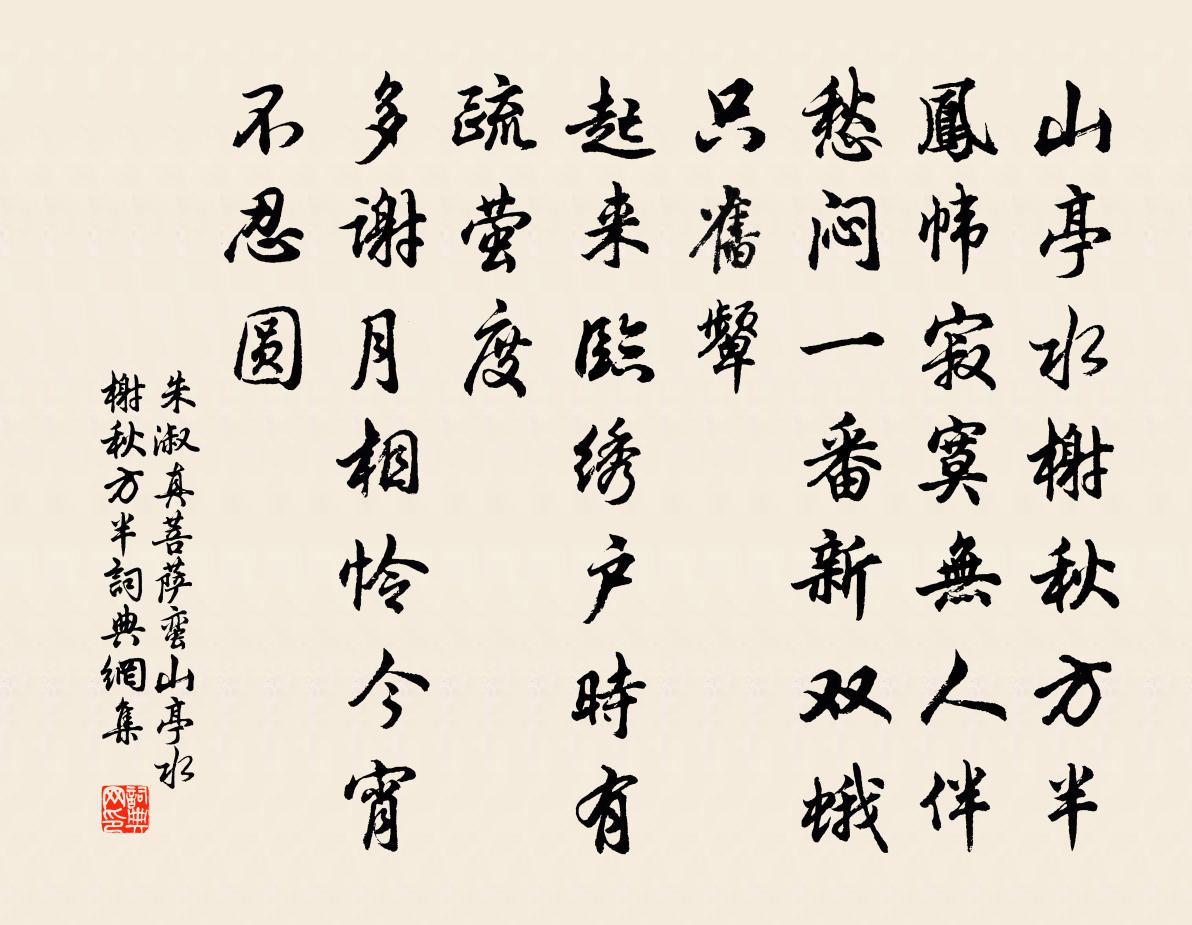 山亭水榭秋方半
鳳帏寂寞無人伴
愁闷一番新双蛾
只舊颦
起来臨绣户時有
疏萤度
多谢月相怜今宵
不忍圆
朱淑真菩萨蛮山亭水
榭秋方半詞典網集
詞典
网印